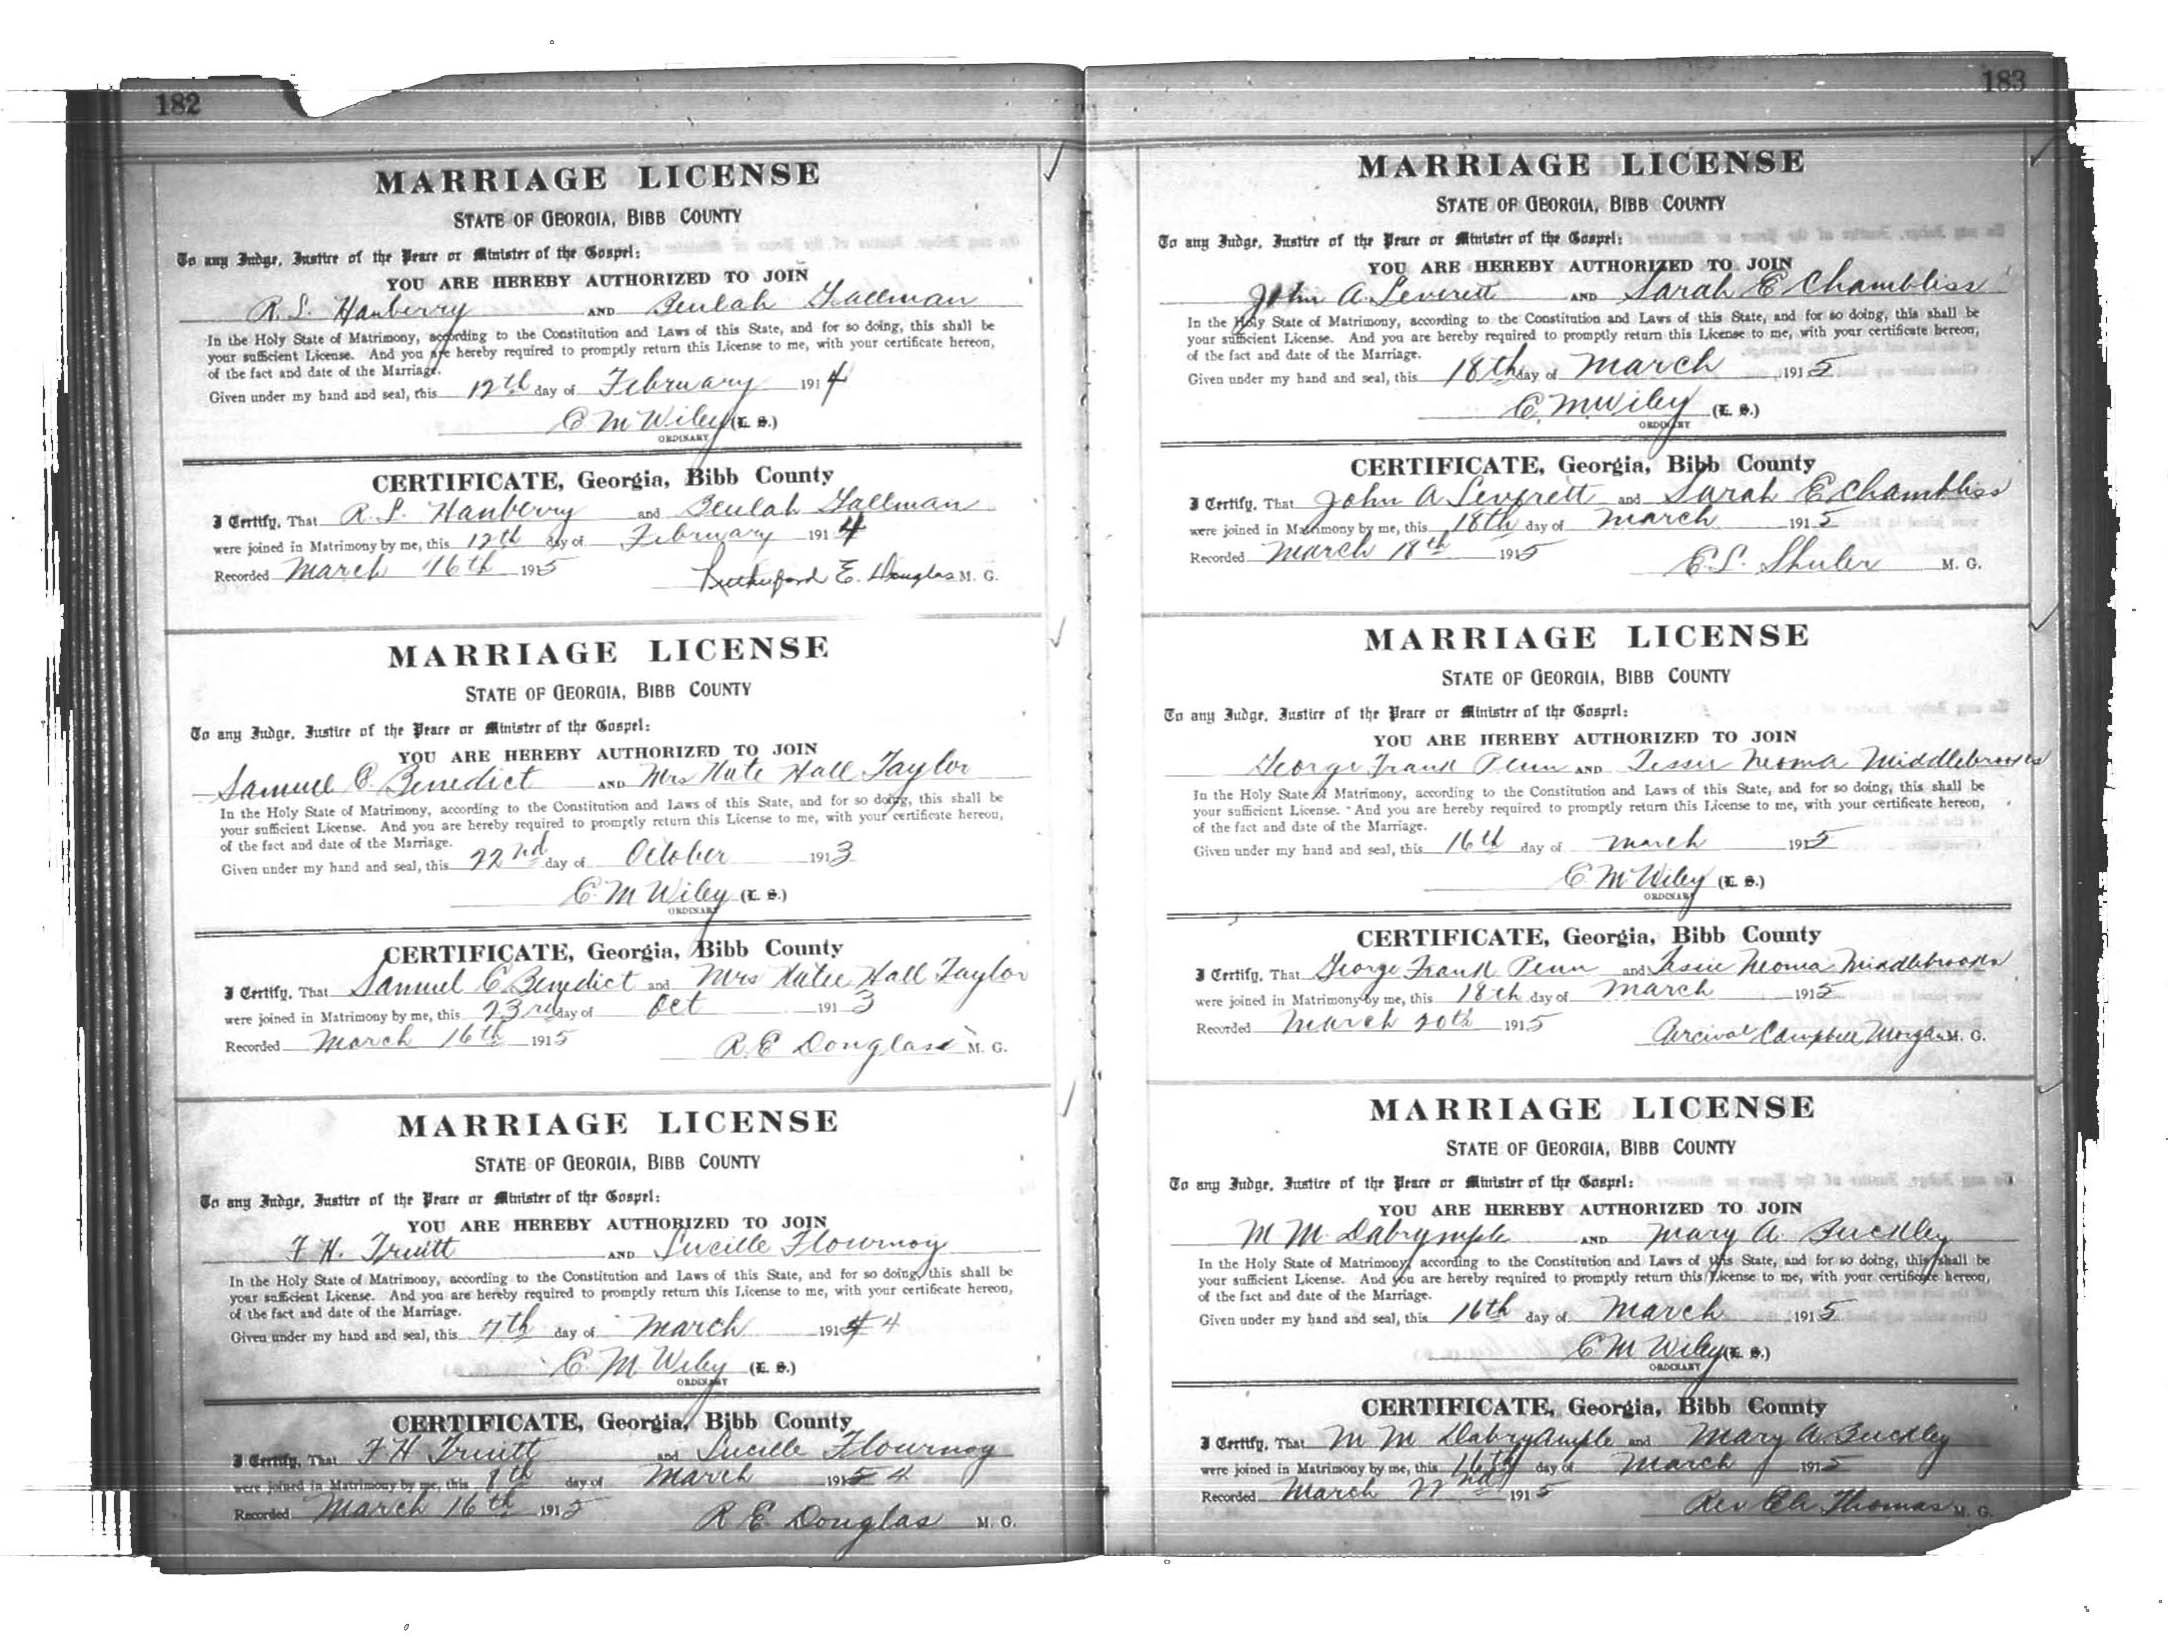 182
MARRIAGE LICENSE
STATE OF GEORGIA, BIBB COUNTY
To any Judge, Justice of the Peace or Minister of the Gospel:
YOU ARE HEREBY AUTHORIZED TO JOIN
R. L. Hanberry AND Beulah Tallman
In the Holy State of Matrimony, according to the Constitution and Laws of this State, and for so doing, this shall be
your sufficient License. And you are hereby required to promptly return this License to me, with your certificate hereon,
of the fact and date of the Marriage.
Given under my hand and seal, this 12th day of February 1914
C M Wiley (L. S.)
ORDINARY
CERTIFICATE, Georgia, Bibb County
I Certify, That R. L. Hanberry and Beulah Tallman
were joined in Matrimony by me, this 12th day of February 1914
Recorded March 16th 1915
Rutherford E. Douglas M. G.
MARRIAGE LICENSE
STATE OF GEORGIA, BIBB COUNTY
To any Judge, Justice of the Peace or Minister of the Gospel:
YOU ARE HEREBY AUTHORIZED TO JOIN
Samuel C. Benedict AND Mrs Kate Hall Taylor
In the Holy State of Matrimony, according to the Constitution and Laws of this State, and for so doing, this shall be
your sufficient License. And you are hereby required to promptly return this License to me, with your certificate hereon,
of the fact and date of the Marriage.
Given under my hand and seal, this 22nd day of October 1913
C. M Wiley (L. S.)
ORDINARY
CERTIFICATE, Georgia, Bibb County
I Certify, That Samuel C Benedict and Mrs Katie Hall Taylor
were joined in Matrimony by me, this 23rd day of Oct 1913
Recorded March 16th 1915
R. E Douglass M. G.
MARRIAGE LICENSE
STATE OF GEORGIA, BIBB COUNTY
To any Judge, Justice of the Peace or Minister of the Gospel:
YOU ARE HEREBY AUTHORIZED TO JOIN
F H. Truitt AND Lucille Flournoy
In the Holy State of Matrimony, according to the Constitution and Laws of this State, and for so doing, this shall be
your sufficient License. And you are hereby required to promptly return this License to me, with your certificate hereon,
of the fact and date of the Marriage.
Given under my hand and seal, this 7th day of March 191 4
C. M. Wiley (L. S.)
ORDINARY
CERTIFICATE, Georgia, Bibb County
I Certify, That F H Truitt and Lucille Flournoy
were joined in Matrimony by me, this 8th day of March 1915 4
Recorded March 16th 1915
R E Douglas M. G.
183
MARRIAGE LICENSE
STATE OF GEORGIA, BIBB COUNTY
To any Judge, Justice of the Peace or Minister of the Gospel:
YOU ARE HEREBY AUTHORIZED TO JOIN
John A. Leverett AND Sarah E Chambliss
In the Holy State of Matrimony, according to the Constitution and Laws of this State, and for so doing, this shall be
your sufficient License. And you are hereby required to promptly return this License to me, with your certificate hereon,
of the fact and date of the Marriage.
Given under my hand and seal, this 18th day of March 1915
C. M Wiley (L. S.)
ORDINARY
CERTIFICATE, Georgia, Bibb County
I Certify, That John A Leverett and Sarah E Chambliss
were joined in Matrimony by me, this 18th day of March 1915
Recorded March 18th 1915
C. L. Shuler M. G.
MARRIAGE LICENSE
STATE OF GEORGIA, BIBB COUNTY
To any Judge, Justice of the Peace or Minister of the Gospel:
YOU ARE HEREBY AUTHORIZED TO JOIN
George Frank Penn AND Tessie Neoma Middlebrooks
In the Holy State of Matrimony, according to the Constitution and Laws of this State, and for so doing, this shall be
your sufficient License. And you are hereby required to promptly return this License to me, with your certificate hereon,
of the fact and date of the Marriage.
Given under my hand and seal, this 16th day of March 1915
C M Wiley (L. S.)
ORDINARY
CERTIFICATE, Georgia, Bibb County
I Certify, That George Frank Penn and Tessie Neoma Middlebrooks
were joined in Matrimony by me, this 18th day of March 1915
Recorded March 20th 1915
Campbell Morgan M. G.
MARRIAGE LICENSE
STATE OF GEORGIA, BIBB COUNTY
To any Judge, Justice of the Peace or Minister of the Gospel:
YOU ARE HEREBY AUTHORIZED TO JOIN
M M. Dabrymple AND Mary A. Buckley
In the Holy State of Matrimony, according to the Constitution and Laws of this State, and for so doing, this shall be
your sufficient License. And you are hereby required to promptly return this License to me, with your certificate hereon,
of the fact and date of the Marriage.
Given under my hand and seal, this 16th day of March 1915
C M Wiley (L. S.)
ORDINARY
CERTIFICATE, Georgia, Bibb County
I Certify, That M M Dabryample and Mary A. Buckley
were joined in Matrimony by me, this 16th day of March 1915
Recorded March 22nd 1915
Rev Eli Thomas M. G.